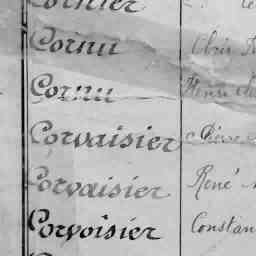 Cornu
Cornu Henri
Corvaisier Pierre
Corvaisier René
Corvoisier Constan